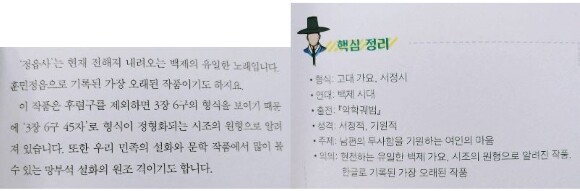 '정읍사'는 현재 전해져 내려오는 백제의 유일한 노래입니다.
훈민정음으로 기록된 가장 오래된 작품이기도 하지요.
이 작품은 후렴구를 제외하면 3장 6구의 형식을 보이기 때문
에 '3장 6구 45자'로 형식이 정형화되는 시조의 원형으로 알려
져 있습니다. 또한 우리 민족의 설화와 문학 작품에서 많이 볼
수 있는 망부석 설화의 원조 격이기도 합니다.
핵심 정리
• 형식: 고대 가요, 서정시
• 연대: 백제 시대
• 출전: 『악학궤범』
• 성격: 서정적, 기원적
• 주제: 남편의 무사함을 기원하는 여인의 마음
• 의의: 현전하는 유일한 백제 가요, 시조의 원형으로 알려진 작품,
한글로 기록된 가장 오래된 작품